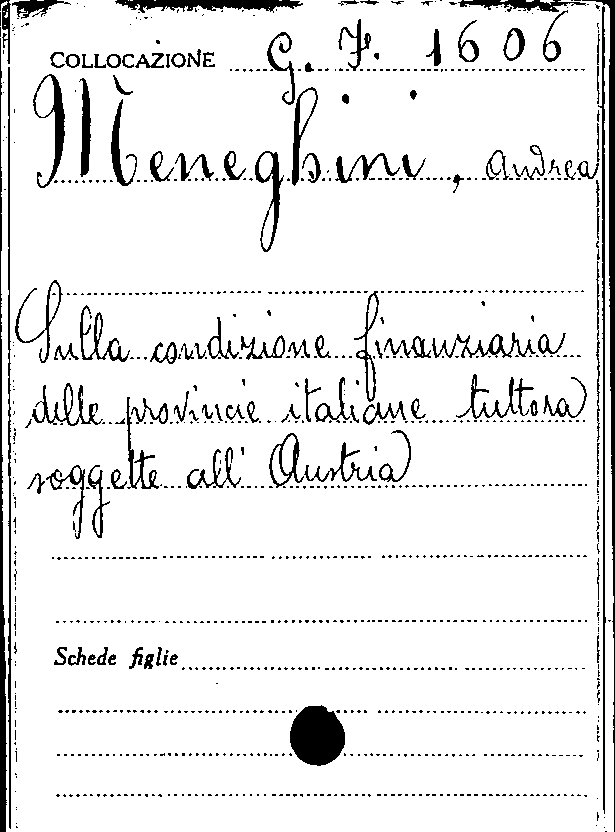 COLLOCAZIONE G. F. 1606
Meneghini, Andrea
Sulla condizione finanziaria
delle provincie italiane tuttora
soggette all' Austria
Schede figlie